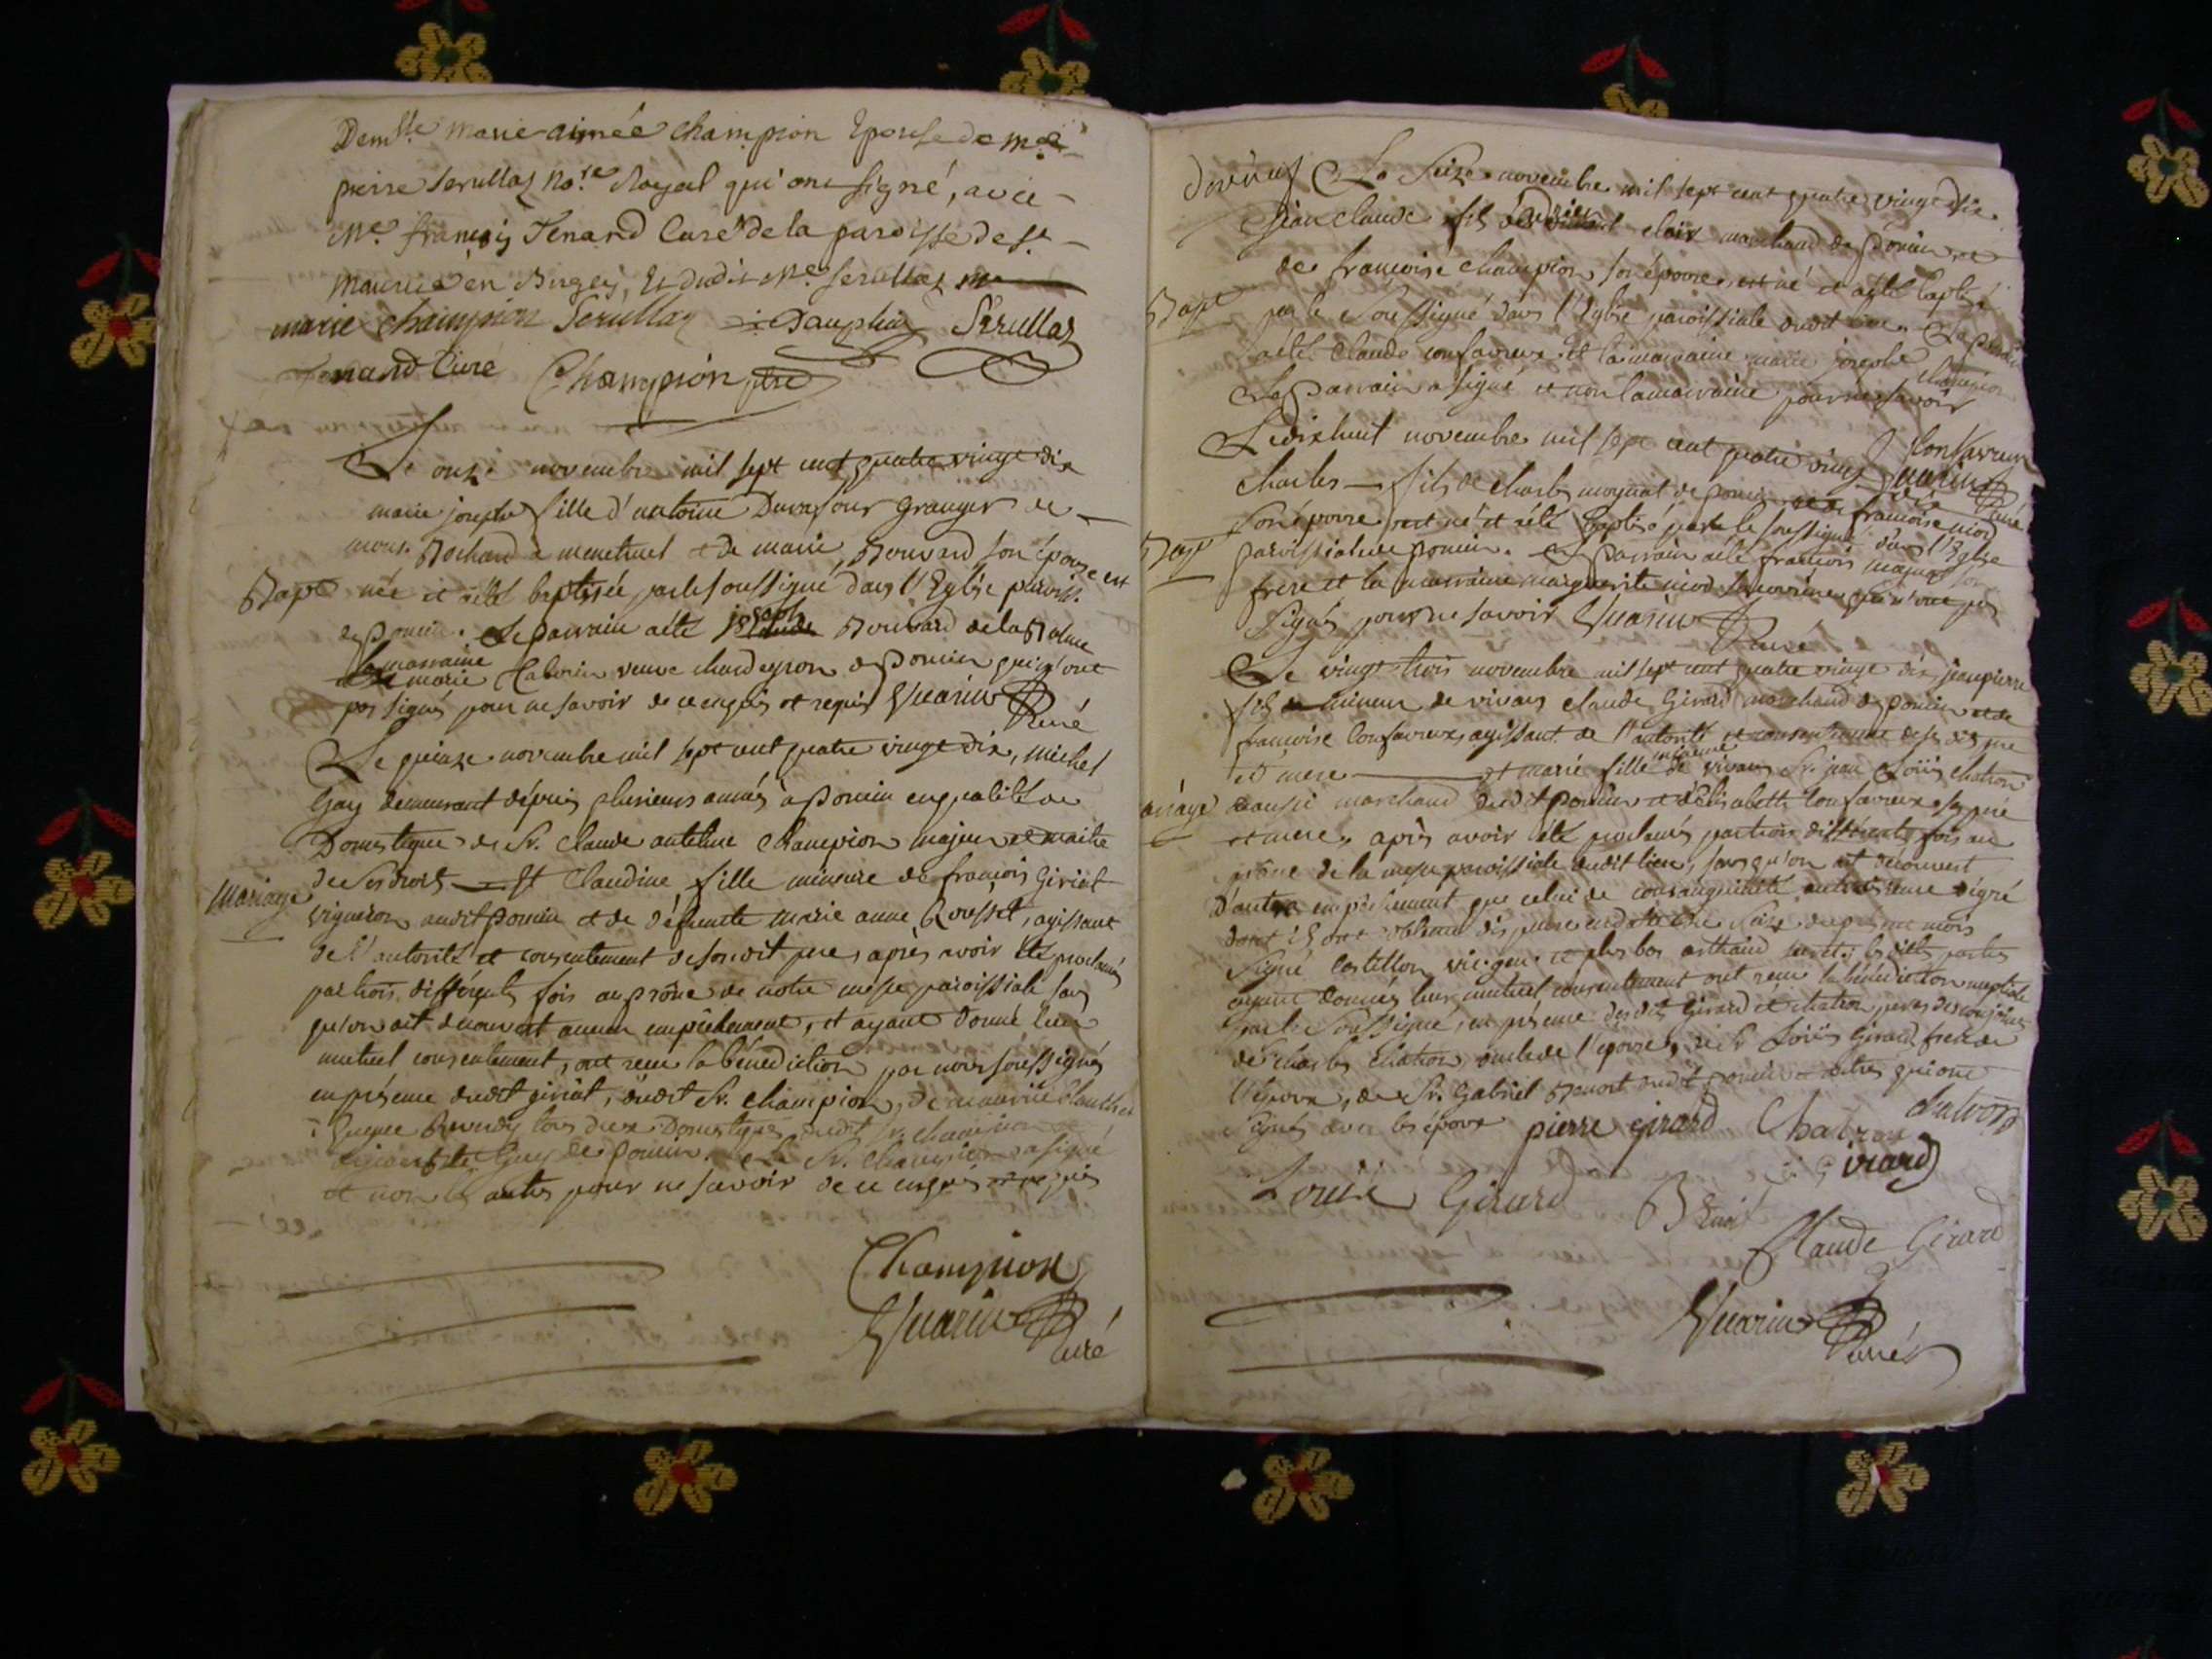 Dem.lle marie aimée champion Epouse de me
pierre serullaz no.re Royal qui ont signé, avec
me. françois Tenard Curé de la paroisse de st
maurice en Bugey, Et dudit me. serullaz
marie champion Serullaz Dauphin Serullaz
Tenard Curé Champion
Le onze novembre mil sept cent quatre vingt dix
marie josephe fille d'antoine granger de
mons. Bochard à menetruel et de marie Bouvard son épouse est
Bapt née et a été baptisée par le soussigné dans l'Eglise paroiss.
de poncin. Le parrain a été joseph Bouvard de la Balme
la marraine marie veuve chardeyron de poncin qui n'ont
pas signés pour ne savoir de ce enquis et requis Guarin
Curé
Le quinze novembre mil sept cent quatre vingt dix, michel
Guy demeurant dépuis plusieurs années à poncin en qualité de
Domestique de Sr. Claude antelme Champion majeur et maitre
de ses droits Et Claudine fille mineure de françois Giriat
Mariage
vigneron audit poncin et de défuncte marie anne Rousset, agissant
de l'autorité et consentement de son dit pere, après avoir été proclamés
par trois différentes fois au prône de notre messe paroissiale sans
qu'on ait découvert aucun empêchement, et ayant donné leur
mutuel consentement, ont reçu la bénediction par nous soussignés
en présence dudit giriat, dudit Sr. Champion, de maurice
tous deux Domestiques dudit Sr. champion
de poncin. Le Sr. Champion a signé
et non les autres pour ne savoir de ce enquis et requis
Champion
Guarin
Curé
Le Seize novembre mil sept cent quatre vingt dix
jean claude fils clair marchand de poncin, et
de françoise champion son épouse, est né et a été baptisé
Bapt par le Soussigné dans l'Eglise paroissiale dudit lieu. Le parrain
a été Claude confavreux et la marraine marie josephe champion
Le parrain a signé et non la marraine pour ne savoir
Confavreux
Guarin
Curé
Le dix huit novembre mil sept cent quatre vingt dix
charles fils de charles moynat de poncin et de françoise niod
son épouse est né et a été baptisé par le soussigné dans l'Eglise
Bapt paroissiale de poncin. Le parrain a été françois moynat son
frere et la marraine marguerite niod qui n'ont pas
signés pour ne savoir Guarin
Curé
Le vingt trois novembre mil sept cent quatre vingt dix, jean pierre
fils mineur de vivans claude Girard marchand de poncin et de
françoise Confavreux, agissant de l'autorité et consentement de ses dits pere
et mere et marie fille mineure de vivans Sr. jean Loüis chatron
aussi marchand dudit poncin et d'Elisabeth Confavreux ses pere
et mere, après avoir été proclamés par trois différentes fois au
prône de la messe paroissiale dudit lieu, sans qu'on ait découvert
d'autre empêchement que celui de consanguinité au troisieme dégré
dont ils ont obtenu dispense en date du seize du présent mois
Signé Castillon vic. gen. et plus bas arthaud secrét. les dites parties
ayant donnés leur mutuel consentement ont reçu la bénédiction nuptiale
par le Soussigné, en présence desdits Girard et chatron peres des conjoints
de charles chatron oncle de l'épouse, de Sr Loüis Girard frere de
l'époux, de Sr. Gabriel Benoit dudit poncin et autres qui ont
signés avec les époux pierre girard Chatron chatron
girard
Louis Girard Benoit
Claude Girard
Guarin
Curé